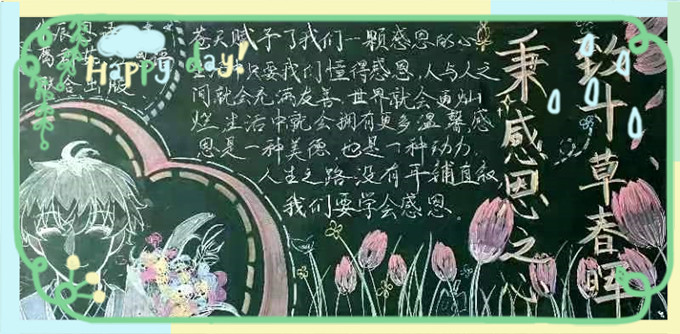 Happy day!
苍天赋予了我们一颗感恩的心
只要我们懂得感恩,人与人之
间就会充满友善.世界就会更灿
烂.生活中就会拥有更多温馨,感
恩是一种美德.也是一种动力.
人生之路没有平铺直叙
我们要学会感恩。
秉感恩之心
草春晖
联合出版